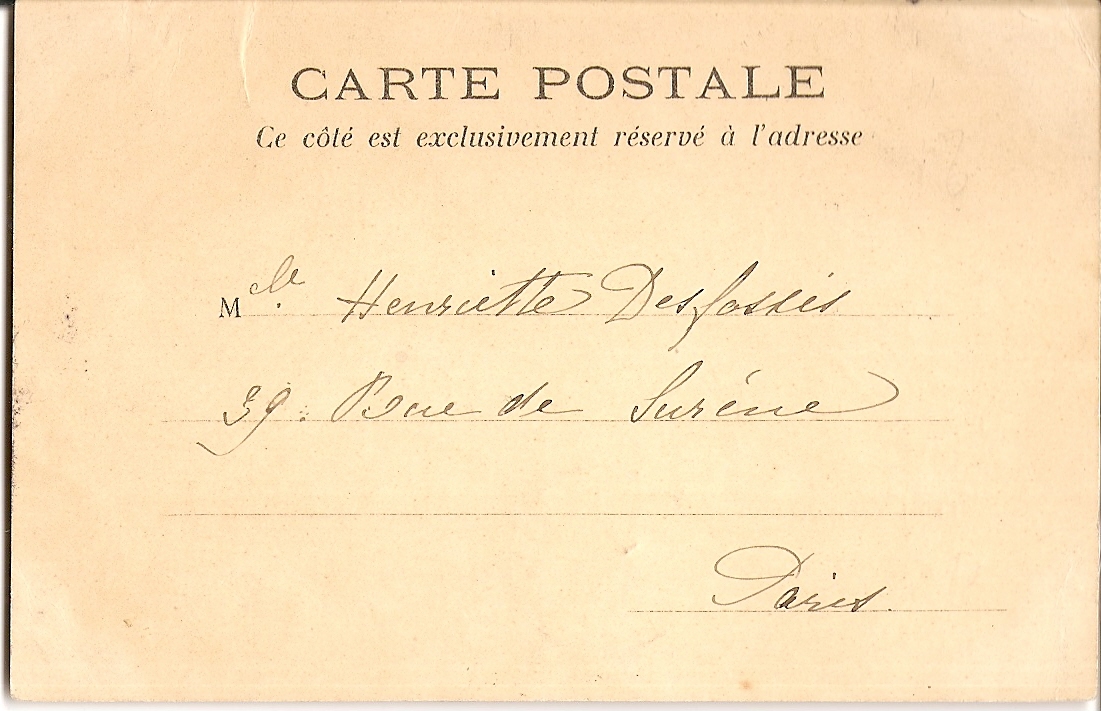 CARTE POSTALE
Ce côté est exclusivement réservé à l'adresse
Mlle Henriette Desfossés
39. Rue de Surène
Paris.